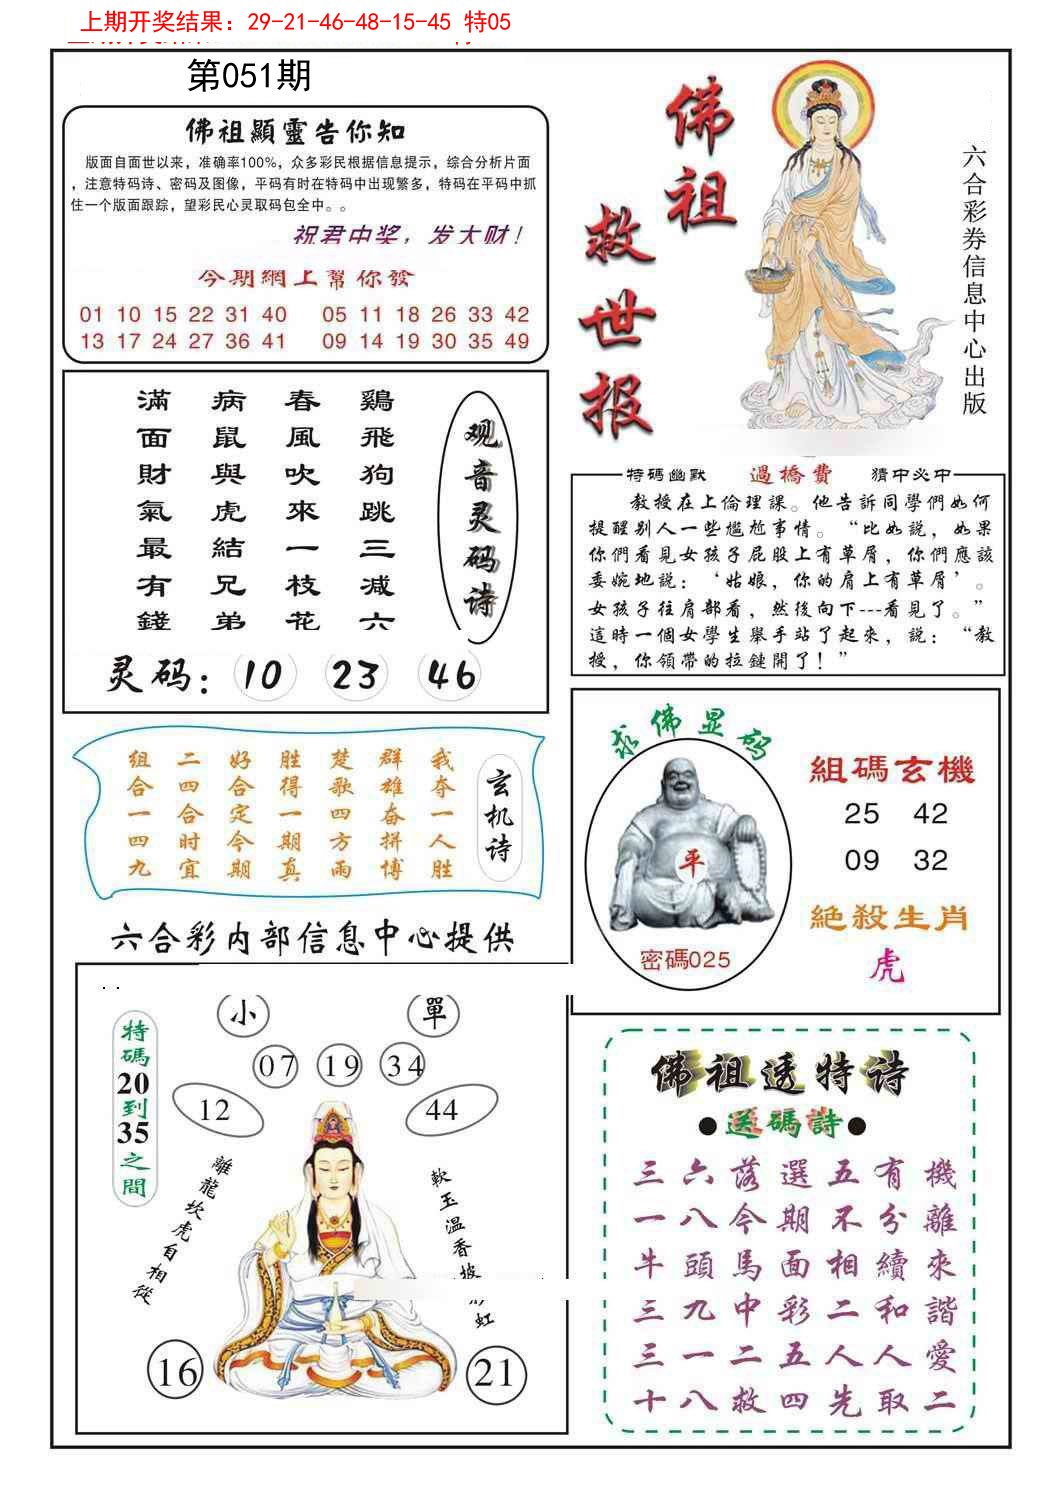 上期开奖结果：29-21-46-48-15-45 特05
第051期
佛祖顯靈告你知
版面自面世以来，准确率100%，众多彩民根据信息提示，综合分析片面
，注意特码诗、密码及图像，平码有时在特码中出现繁多，特码在平码中抓
住一个版面跟踪，望彩民心灵取码包全中。。
祝君中奖，发大财！
今期網上幫你發
01 10 15 22 31 40 05 11 18 26 33 42
13 17 24 27 36 41 09 14 19 30 35 49
佛祖
救世报
六合彩券信息中心出版
观音灵码诗
鷄飛狗跳三减六
春風吹來一枝花
病鼠與虎結兄弟
滿面財氣最有錢
灵码：10 23 46
特碼幽默 過橋費 猜中必中
教授在上倫理課。他告訴同學們如何
提醒别人一些尷尬事情。“比如説，如果
你們看見女孩子屁股上有草屑，你們應該
委婉地説：‘姑娘，你的肩上有草屑’。
女孩子往肩部看，然後向下---看見了。”
這時一個女學生舉手站了起來，説：“教
授，你領帶的拉鏈開了！”
玄机诗
我夺一人胜
群雄奋拼博
楚歌四方雨
胜得一期真
好合定今期
二四合时宜
组合一四九
求佛显码
平
密碼025
組碼玄機
25 42
09 32
絕殺生肖
虎
六合彩内部信息中心提供
. .
特碼20到35之間
小 單
07 19 34
12 44
離龍坎虎自相從
軟玉温香披彩虹
16 21
佛祖透特诗
●送碼詩●
三六落選五有機
一八今期不分離
牛頭馬面相續來
三九中彩二和諧
三一二五人人愛
十八救四先取二